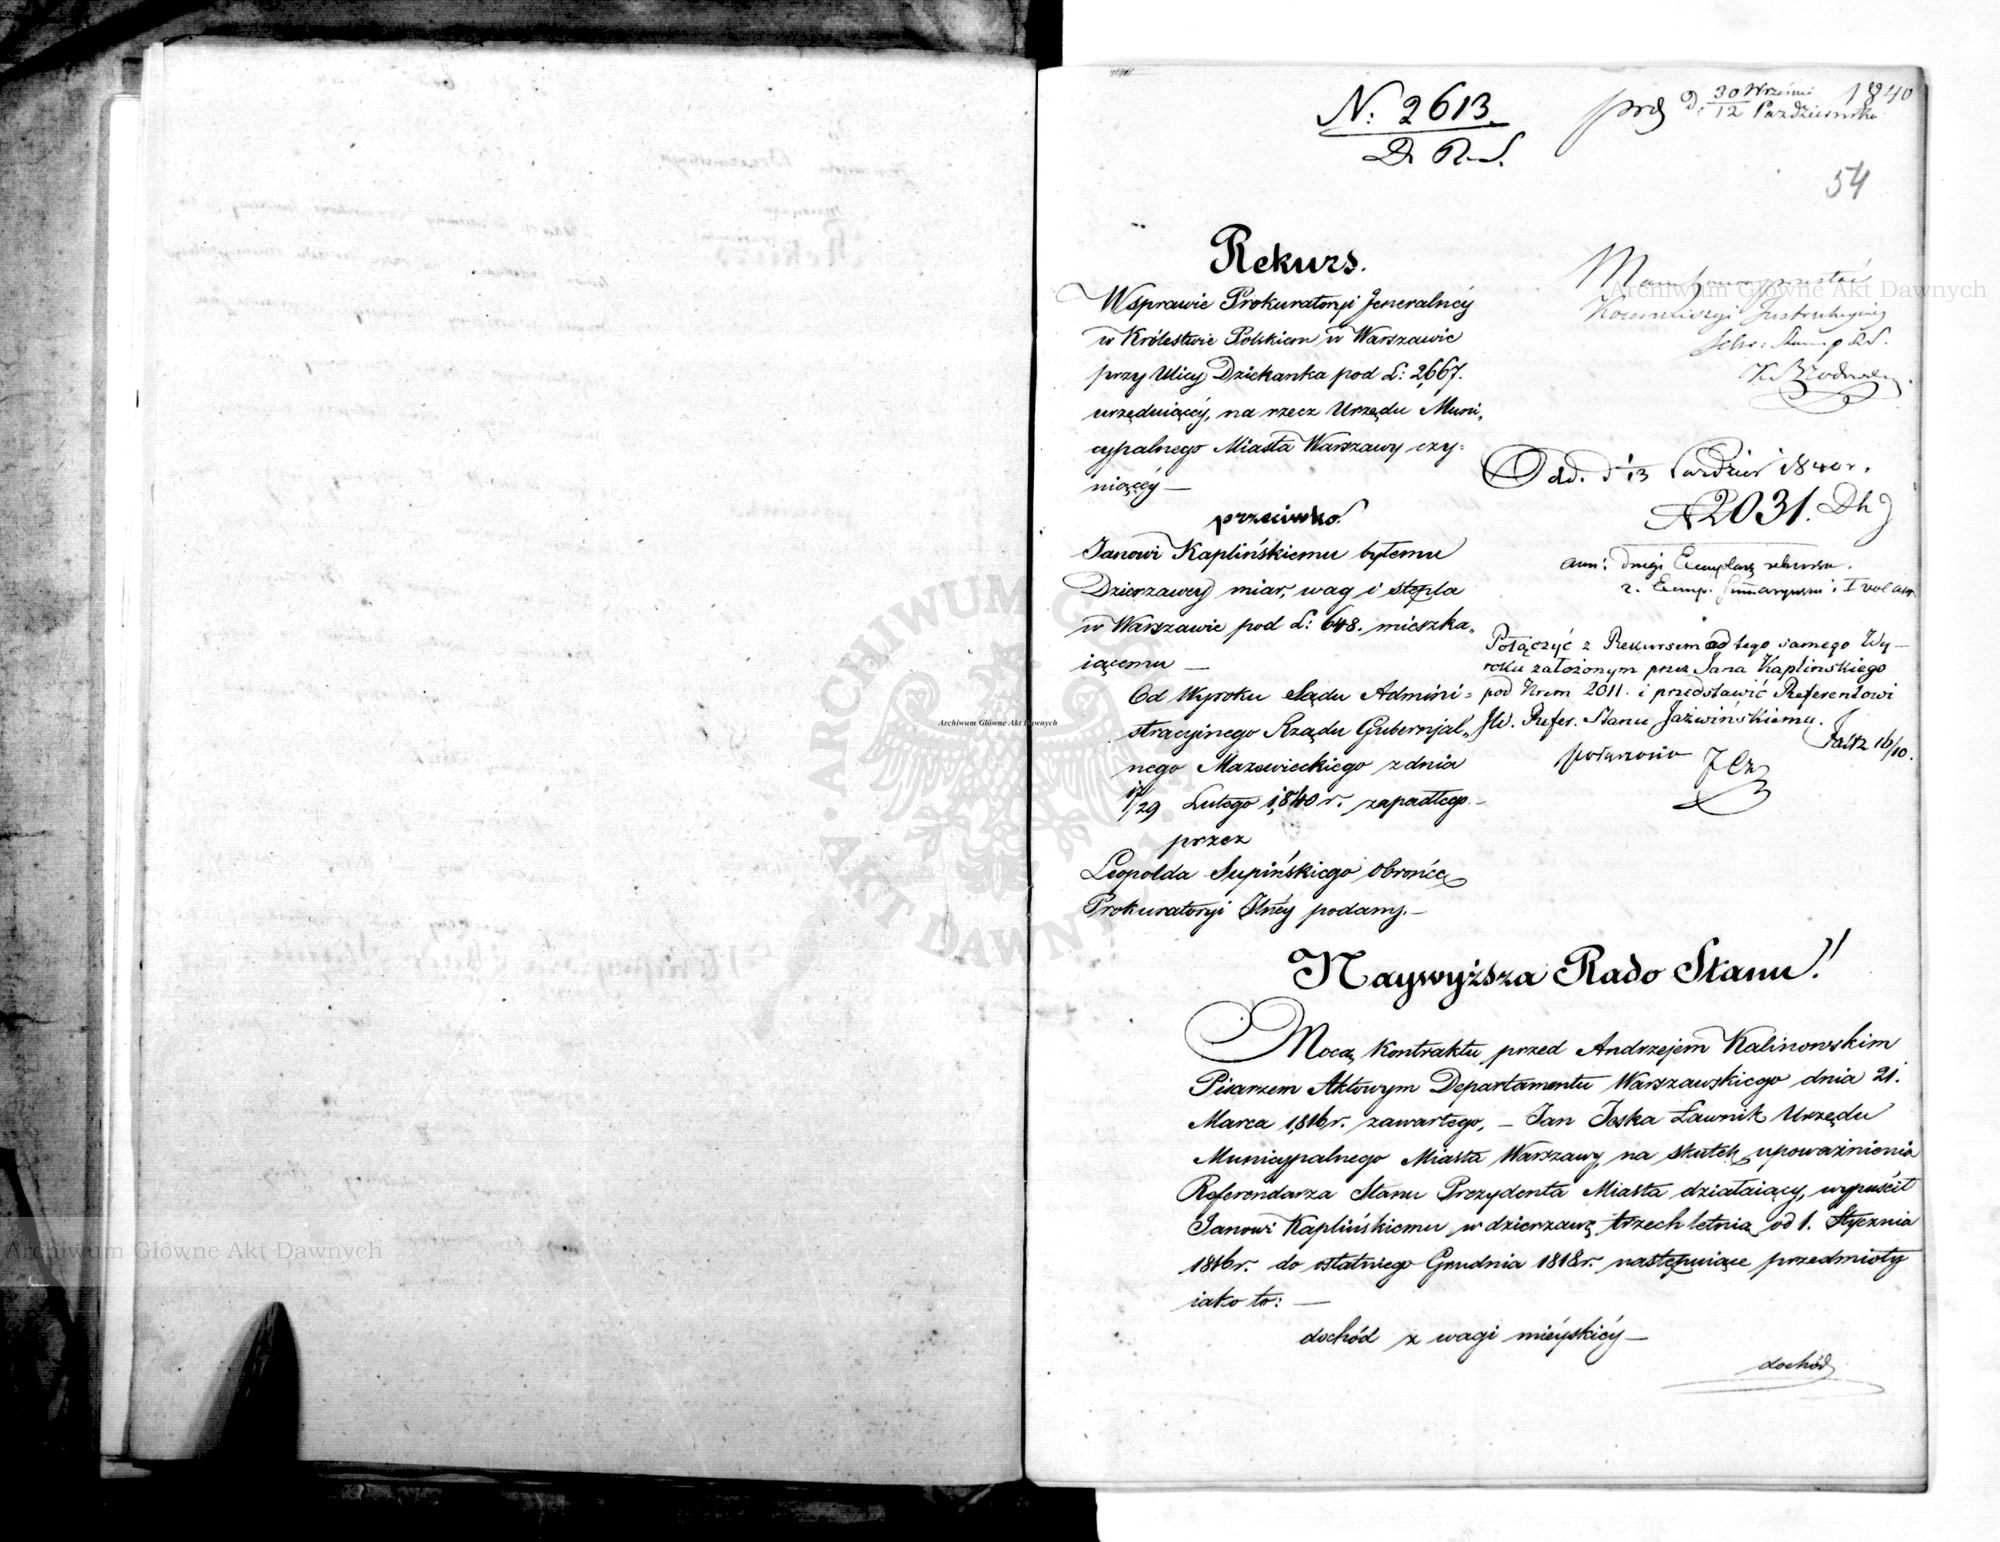 N: 2613.
D. R. S.
prs D. 30 Wrześni 1840
12 Października
54
Rekurs.
W sprawie Prokuratoryi Jeneralnéy
w Królestwie Polskiem w Warszawie
przy Ulicy Dziekanka pod L: 2,667.
urzęduiącéy, na rzecz Urzędu Muni„
cypalnego Miasta Warszawy czy=
niącéy —
przeciwko
Janowi Kaplińskiemu byłemu
Dzierzawcy miar, wag i stępla
w Warszawie pod L: 648. mieszka„
iącemu —
Od Wyroku Sądu Admini=
stracyinego Rządu Gubernjal„
nego Mazowieckiego z dnia
17/29 Lutego 1,840 r. zapadłego. —
przez
Leopolda Supińskiego Obrońcę
Prokuratoryi Jlnéy podany. —
Kommissyi Instrukcyinej
Odd. d 1/13 Paździer 1840 r.
N 2031. Dh
ann: drugi Exemplarz rekursu.
Połączyć z Rekursem od tego samego Wy—
roku założonym przez Jana Kaplinskiego
pod Nrem 2011. i przedstawić Referentowi
JW. Refer. Stanu Jaźwińskiemu.
16/10.
połączono
Naywyższa Rado Stanu!
Mocą Kontraktu przed Andrzejem Kalinowskim
Pisarzem Aktowym Departamentu Warszawskiego dnia 21.
Marca 1,816 r. zawartego, — Jan Jeska Ławnik Urzędu
Municypalnego Miasta Warszawy, na skutek upoważnienia
Referendarza Stanu Prezydenta Miasta działaiący, wypuścił
Janowi Kaplińskiemu w dzierzawę trzech letnią od 1. Stycznia
1816 r. do ostatniego Grudnia 1818 r. następuiące przedmioty
iako to: —
dochód z wagi miéyskiéy —
dochód
Archiwum Główne Akt Dawnych
Archiwum Główne Akt Dawnych
Archiwum Główne Akt Dawnych
ARCHIWUM GŁÓWNE AKT DAWNYCH